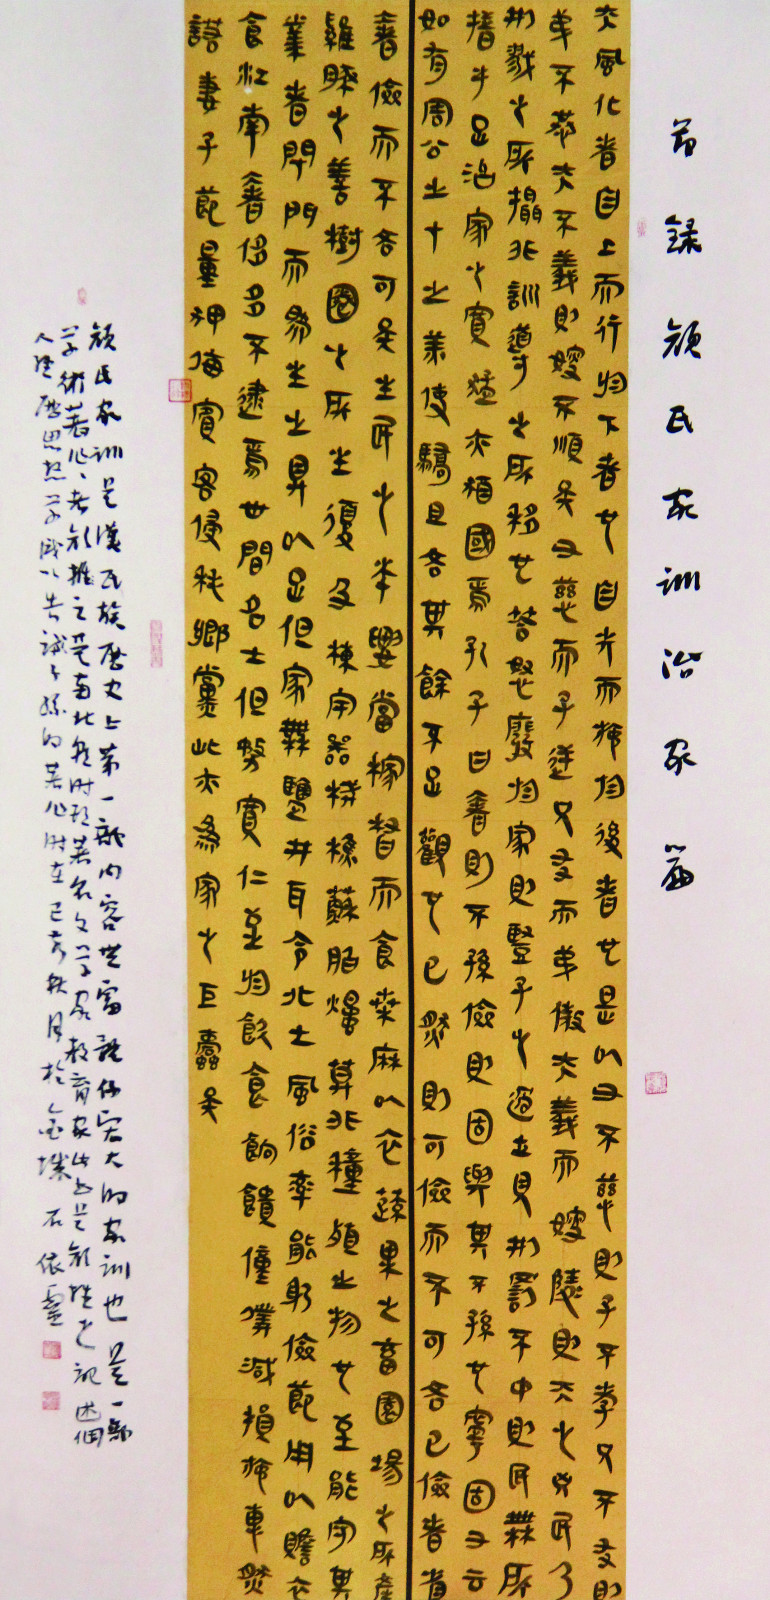 節錄顏氏家訓治家篇
夫風化者自上而行於下者也自先而施於後者也是以父不慈則子不孝兄不友則
弟不恭夫不義則婦不順矣父慈而子逆兄友而弟傲夫義而婦陵則天之凶民乃
刑戮之所攝非訓導之所移也笞怒廢於家則豎子之過立見刑罰不中則民無所
措手足治家之寬猛亦猶國焉孔子曰奢則不孫儉則固與其不孫也寧固又云
如有周公之才之美使驕且吝其餘不足觀也已然則可儉而不可吝已儉者省
奢儉而不吝可矣生民之本要當稼穡而食桑麻以衣蔬果之畜園場之所產
雞豚之善樹圈之所生復及棟宇器械樵蘇脂燭莫非種殖之物也至能守其
業者閉門而為生之具以足但家無鹽井耳今北土風俗率能躬儉節用以贍衣
食江南奢侈多不逮焉世間名士但務寬仁至於飲食餉饋僮僕減損施惠然
諾妻子節量狎侮賓客侵耗鄉黨此亦為家之巨蠹矣
顏氏家訓是漢民族歷史上第一部內容豐富體系宏大的家訓也是一部
學術著作作者顏推之是南北朝時期著名文學家教育家此書是顏推之記述個
人經歷思想學識以告誡子孫的著作時在己亥秋月於金城石依靈